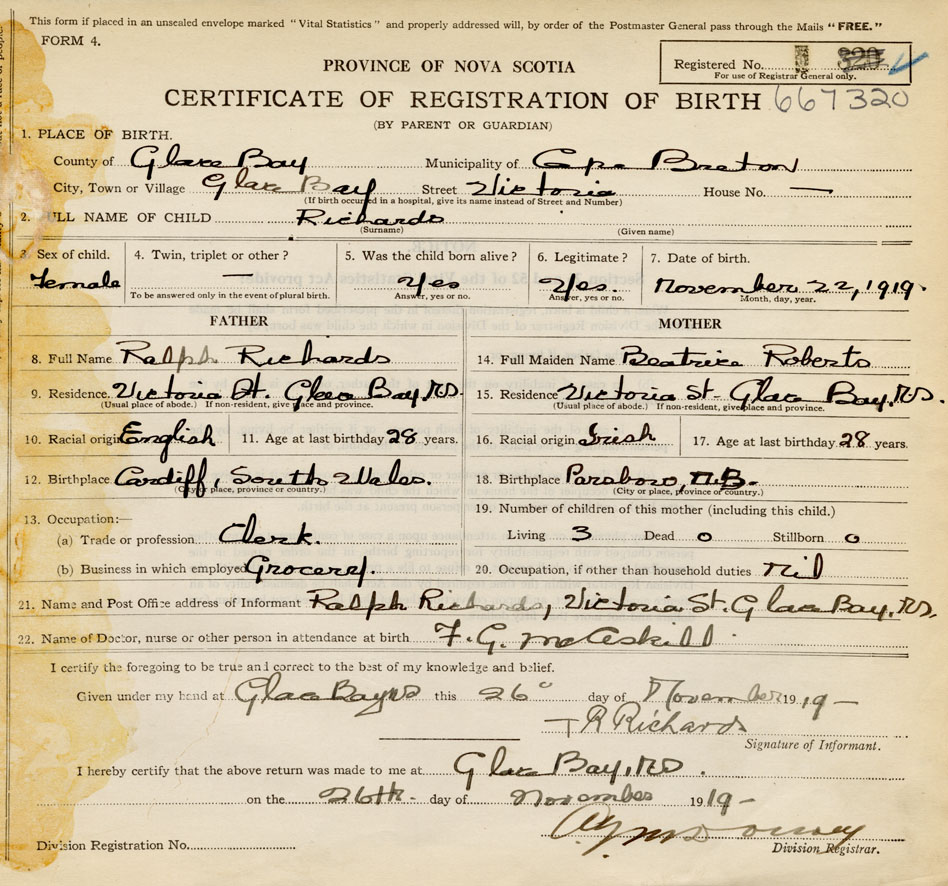 This form if placed in an unsealed envelope marked "Vital Statistics" and properly addressed will, by order of the Postmaster General pass through the Mails "FREE."
FORM 4.
Registered No. 320
For use of Registrar General only.
PROVINCE OF NOVA SCOTIA
CERTIFICATE OF REGISTRATION OF BIRTH 667320
(BY PARENT OR GUARDIAN)
1. PLACE OF BIRTH.
County of Glace Bay Municipality of Cape Breton
City, Town or Village Glace Bay Street Victoria House No. —
(If birth occured in a hospital, give its name instead of Street and Number)
2. ULL NAME OF CHILD Richards
(Surname) (Given name)
3. Sex of child. 4. Twin, triplet or other? 5. Was the child born alive? 6. Legitimate? 7. Date of birth.
Female — Yes Yes. November 22, 1919.
To be answered only in the event of plural birth. Answer, yes or no. Answer, yes or no. Month, day, year.
FATHER MOTHER
8. Full Name Ralph Richards 14. Full Maiden Name Beatrice Roberts
9. Residence. Victoria St. Glace Bay, NS. 15. Residence Victoria St- Glace Bay, NS.
(Usual place of abode.) If non-resident, give place and province. (Usual place of abode.) If non-resident, give place and province.
10. Racial origin English 11. Age at last birthday 28 years. 16. Racial origin Irish 17. Age at last birthday 28 years.
12. Birthplace Cardiff, South Wales. 18. Birthplace Parsboro, N.B.
(City or place, province or country.) (City or place, province or country.)
13. Occupation:— 19. Number of children of this mother (including this child.)
(a) Trade or profession Clerk. Living 3 Dead 0 Stillborn 0
(b) Business in which employed Grocery. 20. Occupation, if other than household duties Nil
21. Name and Post Office address of Informant Ralph Richards, Victoria St. Glace Bay, NS.
22. Name of Doctor, nurse or other person in attendance at birth F. G. McAskill
I certify the foregoing to be true and correct to the best of my knowledge and belief.
Given under my hand at Glace Bay NS this 26" day of November 1919-
R Richards
Signature of Informant.
I hereby certify that the above return was made to me at Glace Bay, NS.
on the 26th- day of November 1919-
Division Registration No. Division Registrar.